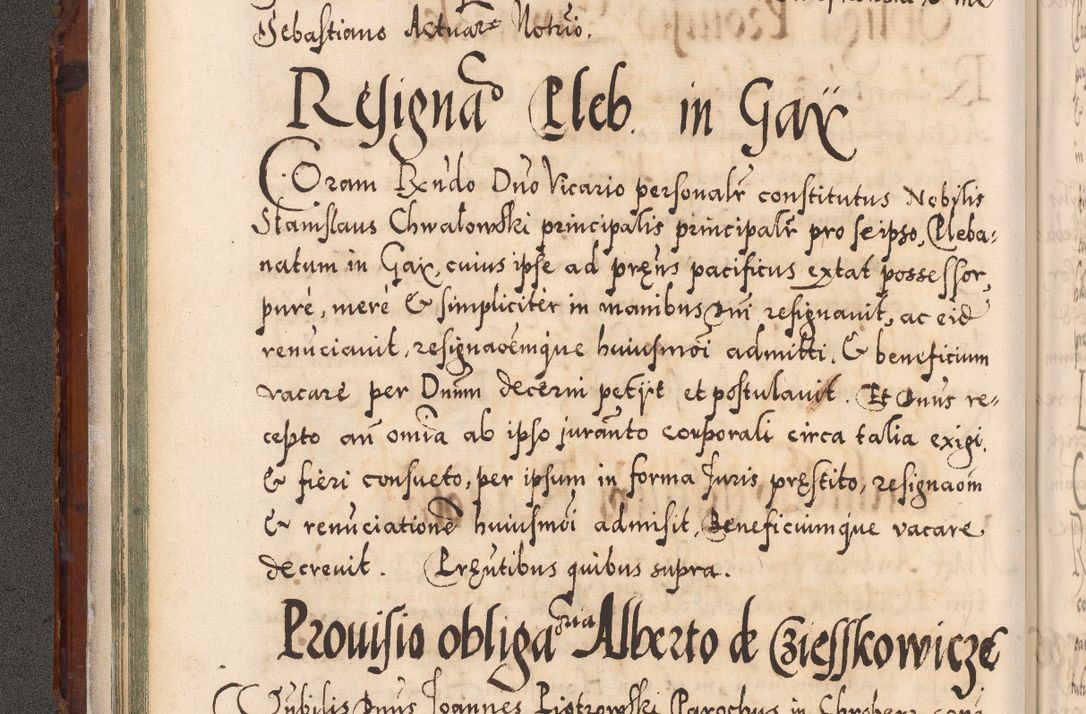 Sebastiano Actuar. Notrio.
Resignao Pleb. in Gax
Coram Rxndo Dno Vicario personalr constitutus Nobylis
Stanislaus Chwalowski principalis principalr pro se ipso, Pleba=
natum in Gax, cuius ipse ad pręns pacificus extat possessor,
purè, merè & simpliciter in manibus Dni resignauit, ac eid
renũciauit, resignaoemque huiusmoi admitti, & beneficium
vacare per Dnum decerni petijt et postulauit. Et Dnus re=
cepto an omia ab ipso juranto corporali circa talia exigi,
& fieri consueto, per ipsum in forma Juris pręstito, resignaom
& renũciationẽ huiusmoi admisit, Beneficiumque vacare
decreuit. Pręntibus quibus supra.
Prouisio obligaria Alberto de Cziesskowicze
Nubilis Dnus Joannes Piotrowski Parochus in Chroberz